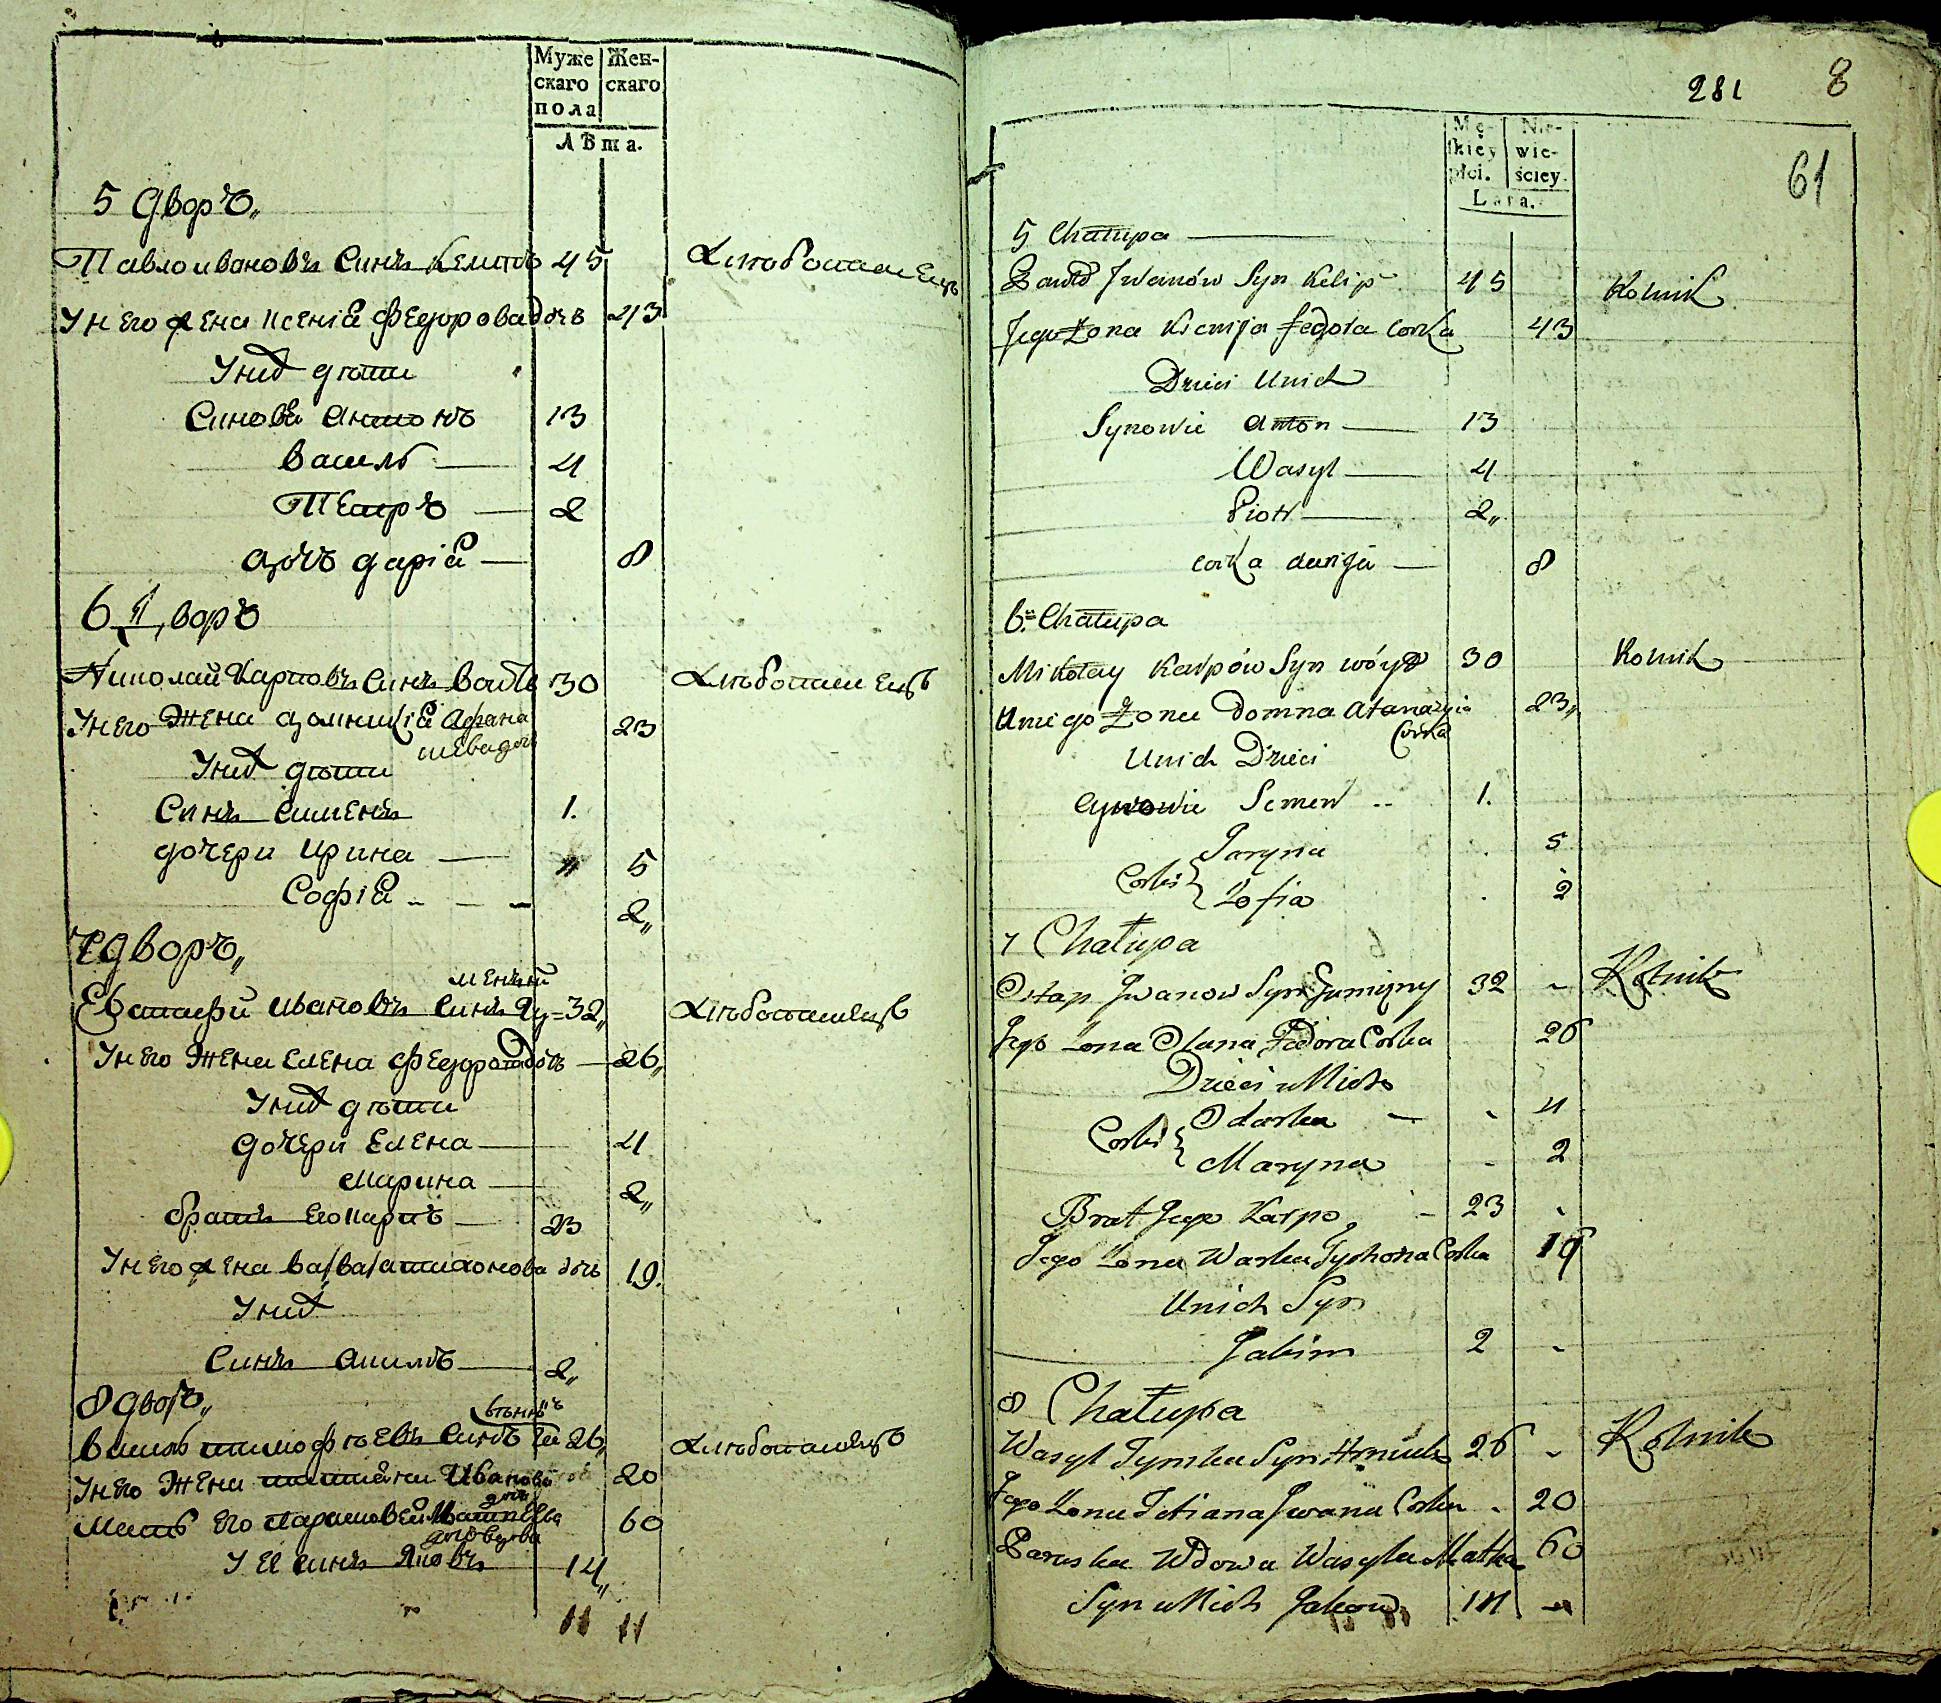 Муже
скаго
пола
Жен-
скаго
Лѣта.
5 Дворъ
Павло ивановъ Синъ 45 Хлѣбопашецъ
У него жена Ксенія Федорова дочь 43
У них дѣти
Синове Антонъ 13
Василь 4
Петръ 2
дочь дарія 8
6 Дворъ
Николай Карповъ Синъ 30 Хлѣбопашецъ
У него Жена Афана
сіева доч 23
У них дѣти
Синъ Сименъ 1.
дочери Ирина 5
Софія 2
7 Дворъ
Евстафи Ивановъ Синъ 32 Хлѣбопашецъ
У него Жена Елена Федорова дочь 26
У них дѣти
дочери Елена 4
Марина 2
братъ его Карпъ 23
У него жена дочь 19.
У них
Синъ 2
8 дворъ
Василь тимофѣевъ Синъ 26 Хлѣбопашецъ
У него Жена Иванова доч 20
Мать его вдова 60
У ея синъ Яковъ 14
11 11
281 8
61
Mę-
skiey
płci.
Nie-
wie-
ściey.
Lata.
5 Chałupa
Pawło Jwanów Syn Kelip 45 Rolnik
Jego Żona Ksenija Fedora Corka 43
Dzieci Unich
Synowie Anton 13
Wasyl 4
Piotr 2
Corka darija 8
6. Chałupa
Mikołay Karpów Syn 30 Rolnik
Uniego Żona Domna Atanazyia
Corka 23
Unich Dzieci
Synowie Semen 1.
Corki Jaryna 5
Zofia 2
7 Chałupa
Ostap Jwanow Syn 32 Rolnik
Jego Żona Olana Fedora Corka 26
Dzieci u Nich
Corki Odarka 4
Maryna 2
Brat Jego Karpo 23
Jego Żona Warka Tychona Corka 19
Unich Syn
Jakim 2
8 Chałupa
Wasyl Tymka Syn 26 Rolnik
Jego Żona Tetiana Jwana Corka 20
Paraska Wdowa Wasyla Matka 60
Syn u Nich Jakow 14